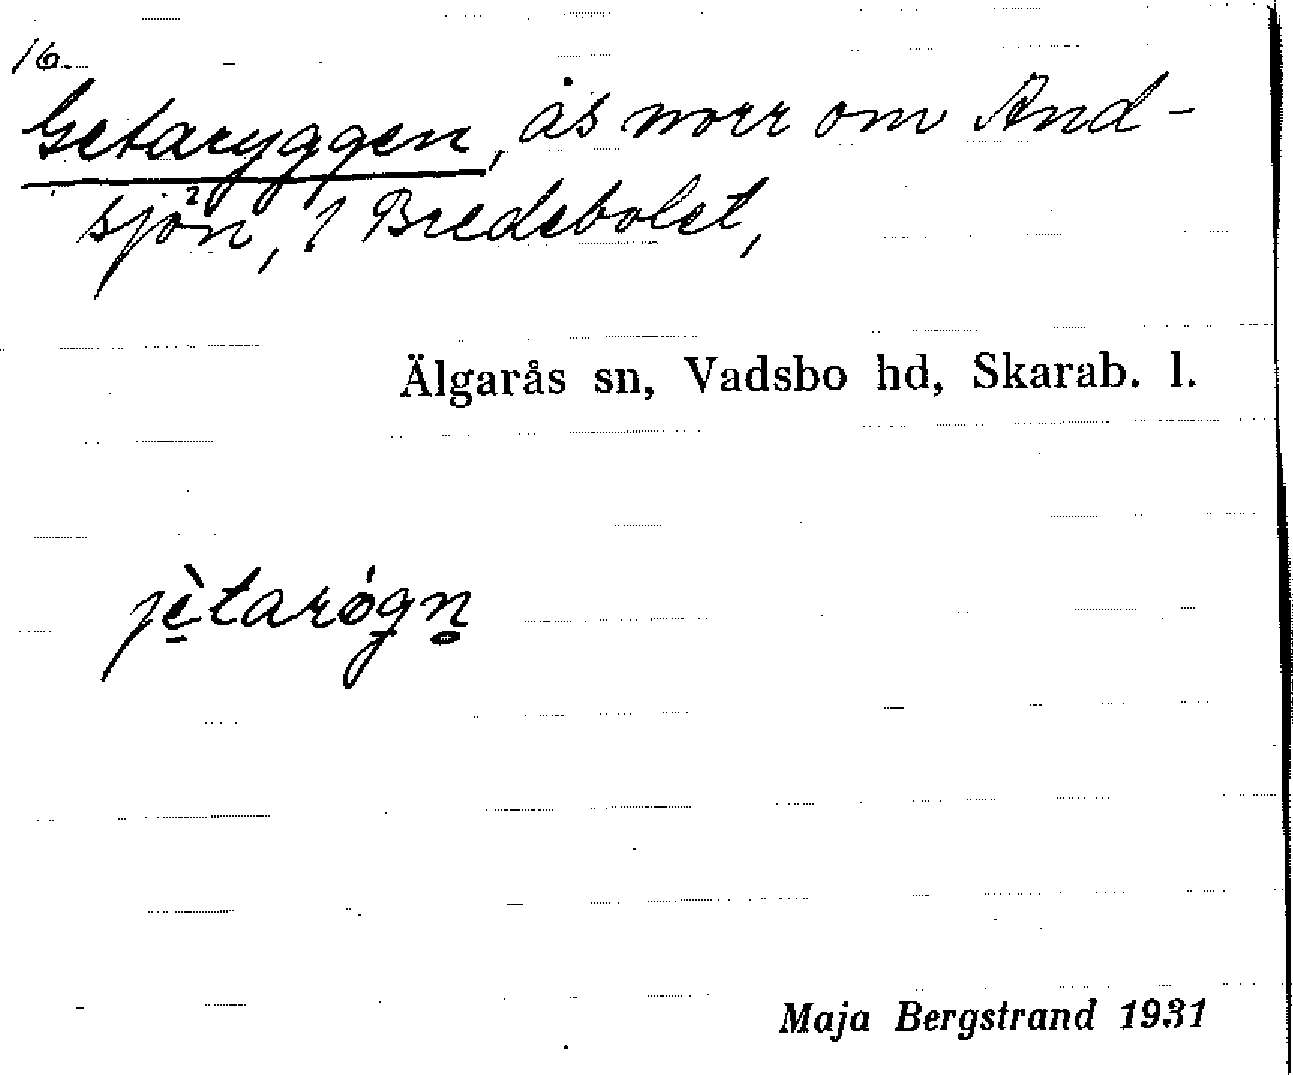 16.
Getaryggen, ås norr om And-
sjön, 1 Bredebolet,
Älgarås sn, Vadsbo hd, Skarab. l.
jè̱tarógn̥
Maja Bergstrand 1931